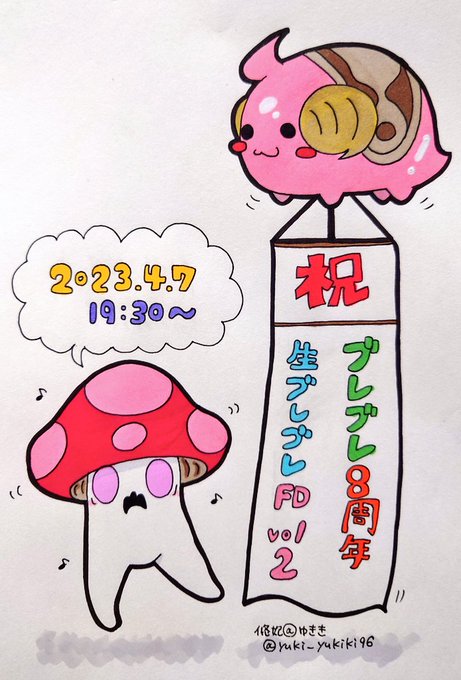 2023.4.7
19:30～
祝
ブレブレ8周年
生ブレブレFD vol2
@ゆきき
@yuki_yukiki96